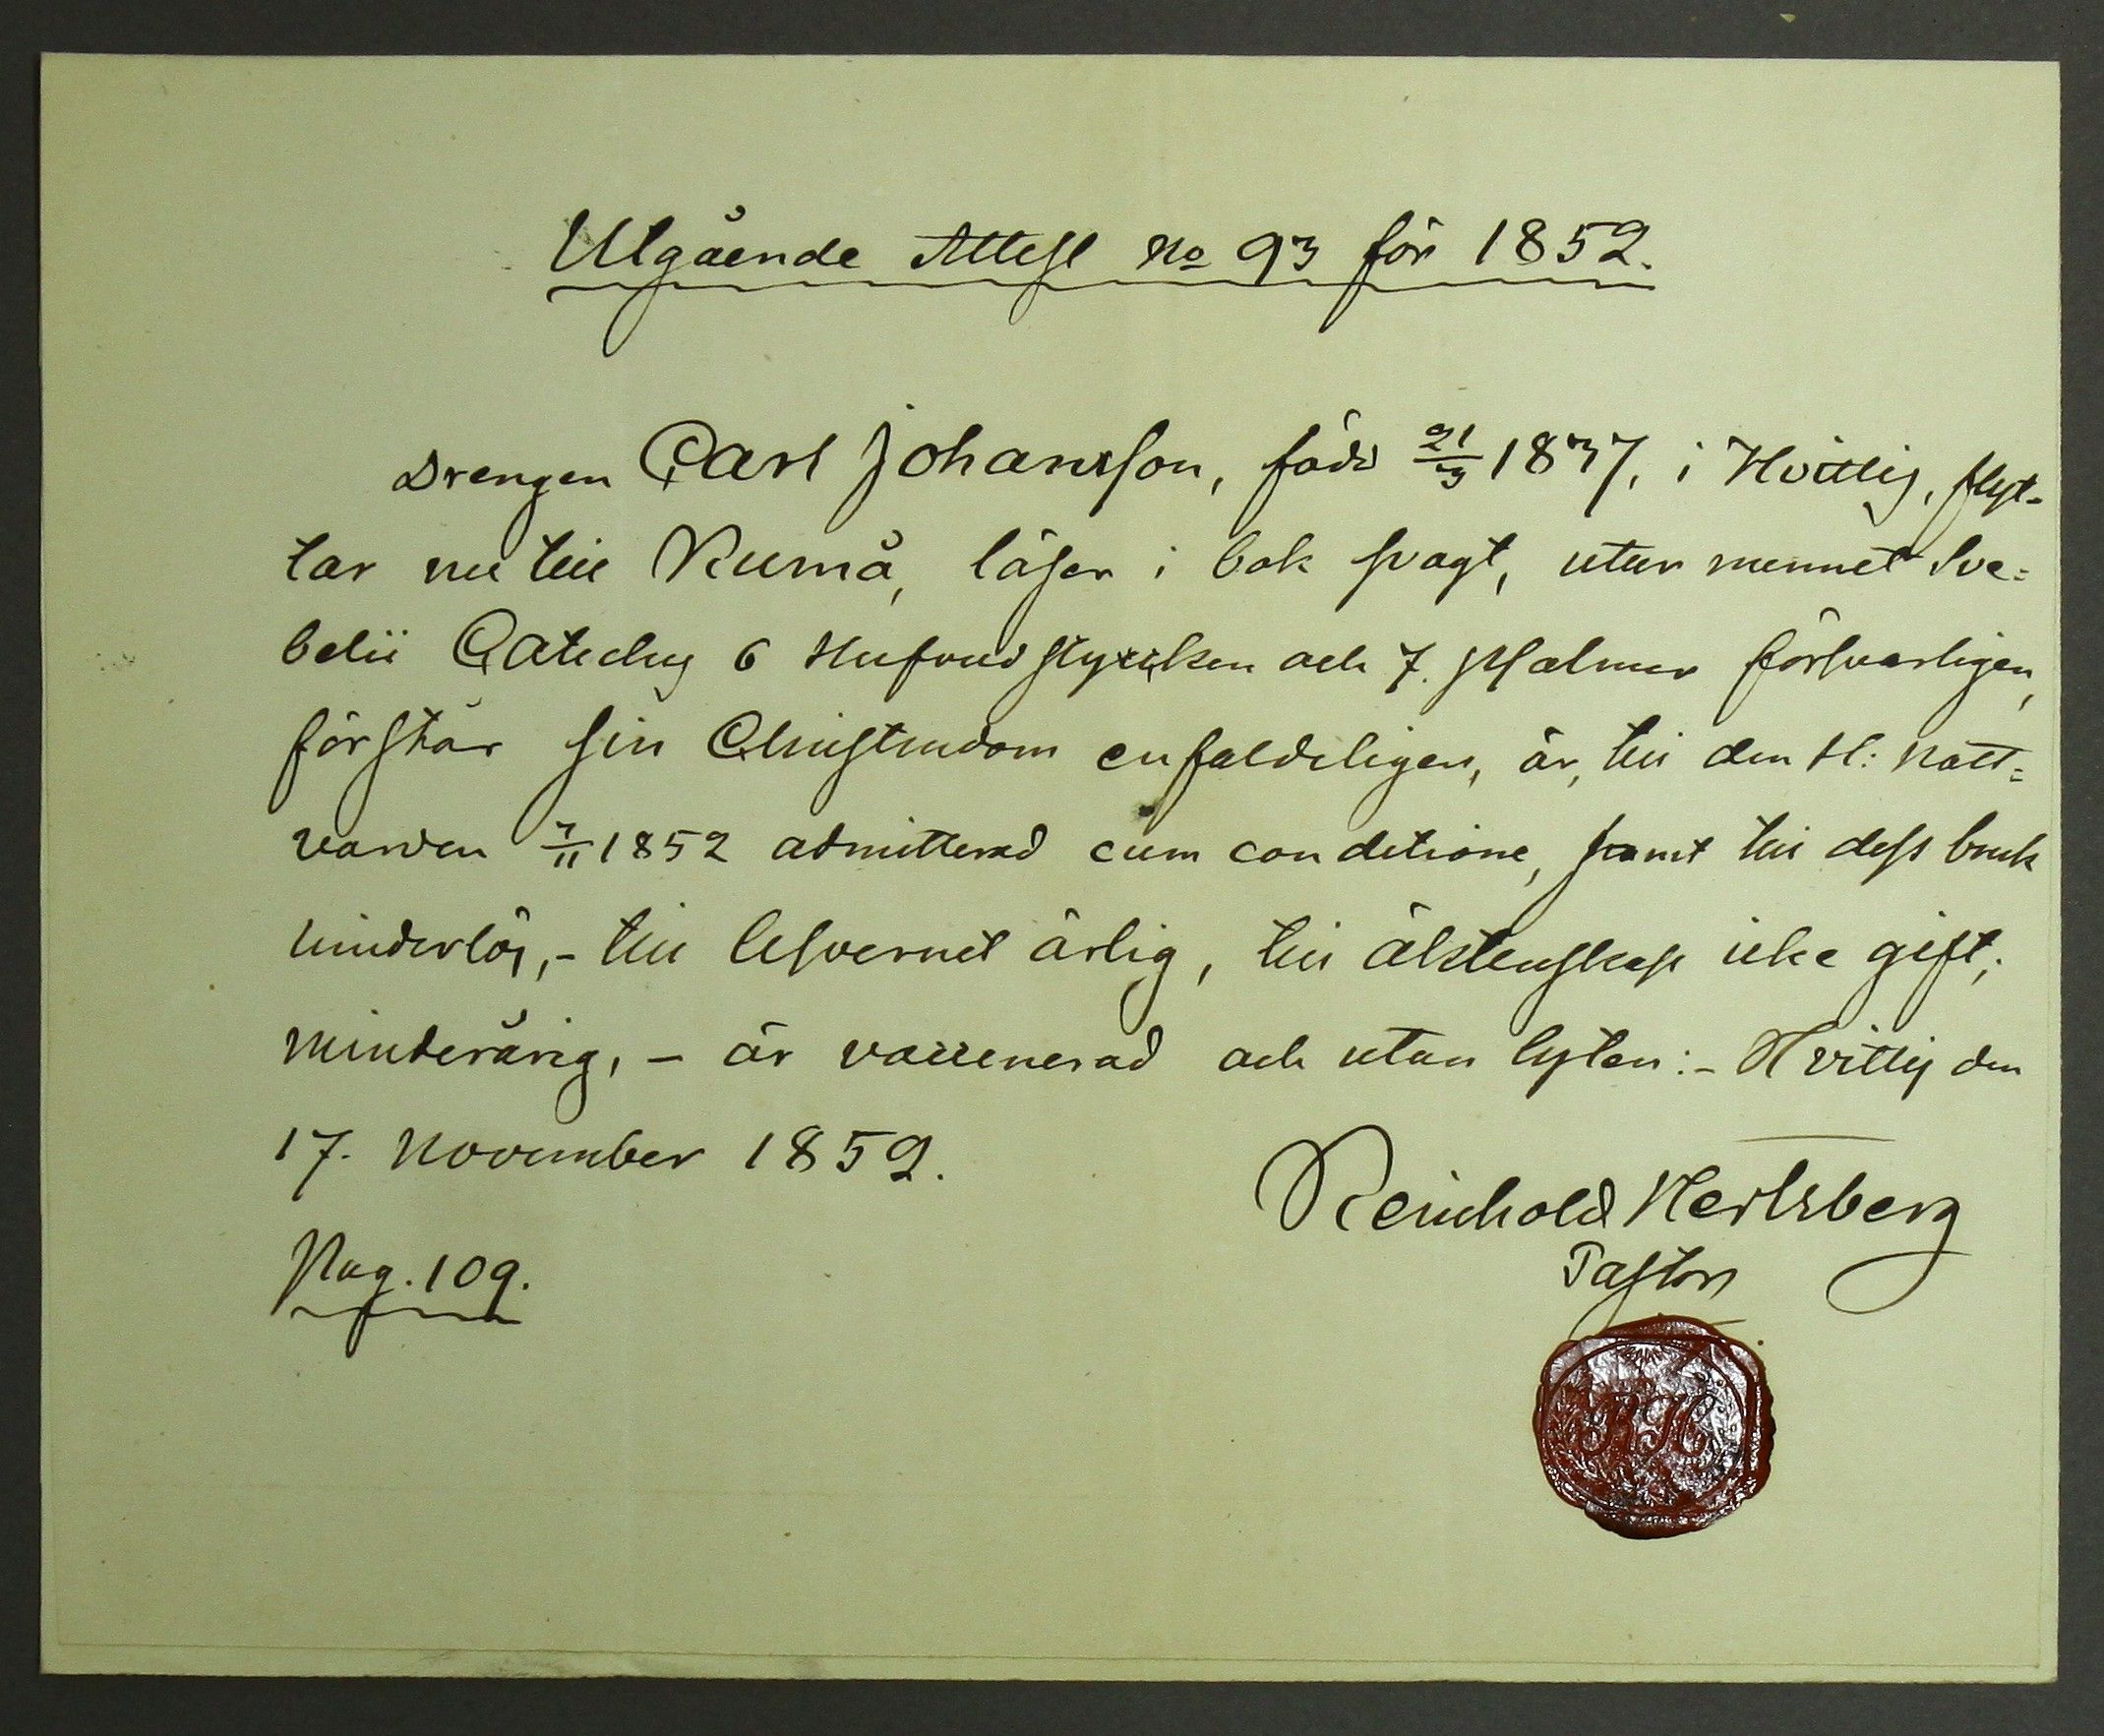 Utgående Attest No 93 för 1852.
Drengen Carl Johansson, född 21/3 1837, i Hvittis, flyt-
tar nu till Kumå, läser i bok svagt, utur minnet Sve=
belii Cateches 6 Hufvudstycken och 7. Psalmer försvarligen,
förstår sin Christendom enfaldeligen, är, till den H: Natt=
varden 7/11 1852 admitterad cum conditione, samt till dess bruk
hinderlös,- till lefvernet ärlig, till äktenskap icke gift;
minderårig, - är vaccinerad och utan lyten:- Hvittis den
17. November 1852.
Reinhold Hertzberg
Pastor
Pag. 109.
RH